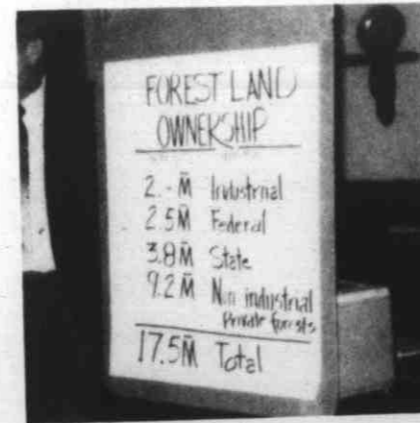 FOREST LAND
OWNERSHIP
2.-M̄ Industrial
2.5M̄ Federal
3.8M̄ State
9.2M̄ Non industrial
Private forests
17.5M̄ Total